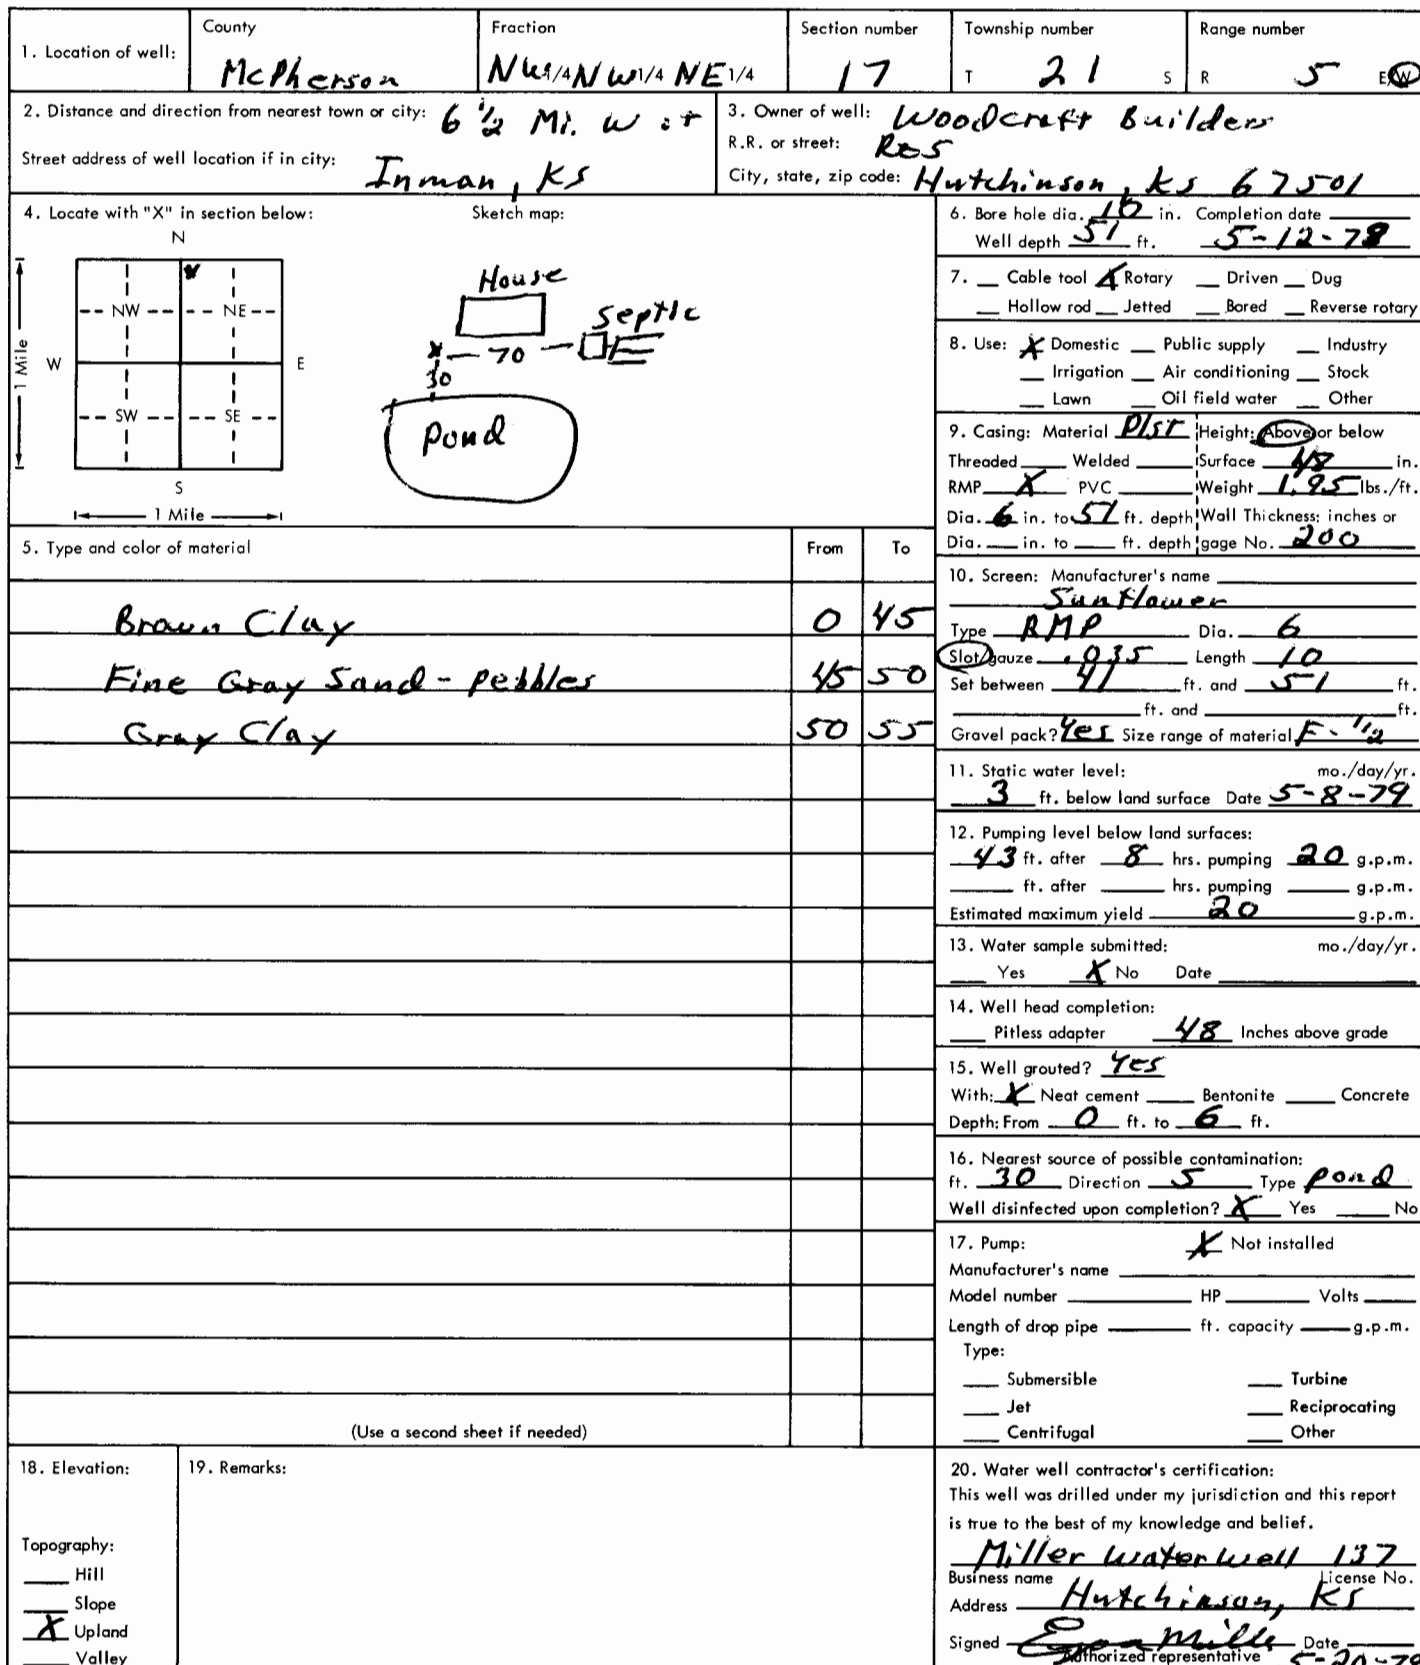 1. Location of well:
County
McPherson
Fraction
NW 1/4 NW 1/4 NE 1/4
Section number
17
Township number
T 21 S
Range number
R 5 E W
2. Distance and direction from nearest town or city: 6 1/2 Mi. W of
Street address of well location if in city:
Inman, KS
3. Owner of well: Woodcraft Builders
R.R. or street:
City, state, zip code: Hutchinson, KS 67501
4. Locate with "X" in section below:
N
NW NE
W E
SW SE
S
1 Mile
1 Mile
Sketch map:
House
Septic
x — 70 —
30
Pond
5. Type and color of material From To
Brown Clay 0 45
Fine Gray Sand - Pebbles 45 50
Gray Clay 50 55
(Use a second sheet if needed)
6. Bore hole dia. 10 in. Completion date
Well depth 51 ft. 5-12-79
7. Cable tool X Rotary Driven Dug
Hollow rod Jetted Bored Reverse rotary
8. Use: X Domestic Public supply Industry
Irrigation Air conditioning Stock
Lawn Oil field water Other
9. Casing: Material Plst Height: Above or below
Threaded Welded Surface 48 in.
RMP X PVC Weight 1.95 lbs./ft.
Dia. 6 in. to 51 ft. depth Wall Thickness: inches or
Dia. in. to ft. depth gage No. 200
10. Screen: Manufacturer's name
Sunflower
Type RMP Dia. 6
Slot/gauze .035 Length 10
Set between 41 ft. and 51 ft.
ft. and ft.
Gravel pack? Yes Size range of material F - 1/2
11. Static water level: mo./day/yr.
3 ft. below land surface Date 5-8-79
12. Pumping level below land surfaces:
43 ft. after 8 hrs. pumping 20 g.p.m.
ft. after hrs. pumping g.p.m.
Estimated maximum yield 20 g.p.m.
13. Water sample submitted: mo./day/yr.
Yes X No Date
14. Well head completion:
Pitless adapter 48 Inches above grade
15. Well grouted? Yes
With: X Neat cement Bentonite Concrete
Depth: From 0 ft. to 6 ft.
16. Nearest source of possible contamination:
ft. 30 Direction S Type Pond
Well disinfected upon completion? X Yes No
17. Pump: X Not installed
Manufacturer's name
Model number HP Volts
Length of drop pipe ft. capacity g.p.m.
Type:
Submersible Turbine
Jet Reciprocating
Centrifugal Other
18. Elevation:
Topography:
Hill
Slope
X Upland
Valley
19. Remarks:
20. Water well contractor's certification:
This well was drilled under my jurisdiction and this report
is true to the best of my knowledge and belief.
Miller Waterwell 137
Business name License No.
Address Hutchinson, KS
Signed Miller Date
Authorized representative 5-20-79